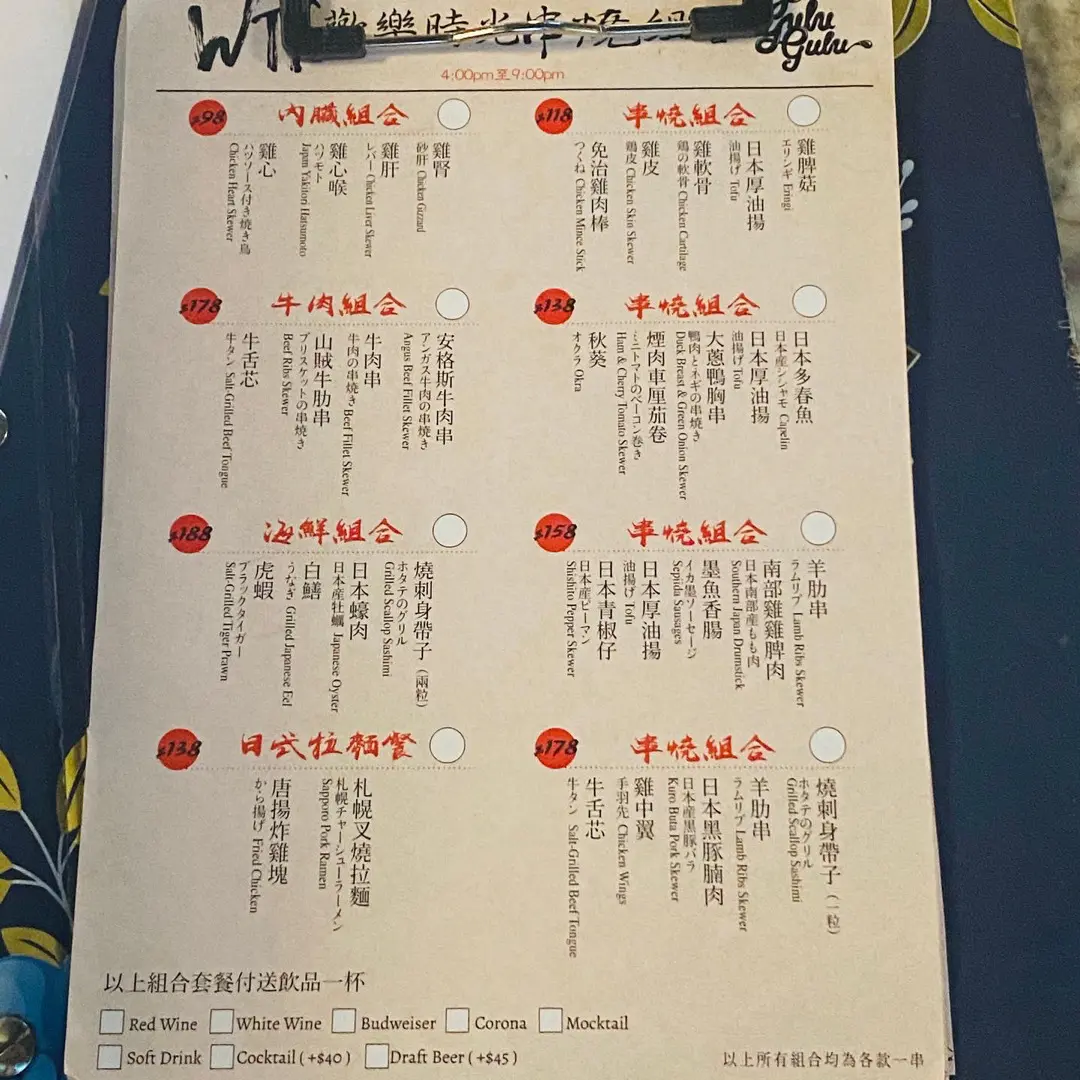 WTF 歡樂時光串燒組合
Gubu
Gulu
4:00pm至9:00pm
$98 內臟組合
雞腎
砂肝 Chicken Gizzard
雞肝
レバー Chicken Liver Skewer
雞心喉
ハツモト
Japan Yakitori Hatsumoto
雞心
ハツソース付き焼き鳥
Chicken Heart Skewer
$118 串燒組合
雞脾菇
エリンギ Eringi
日本厚油揚
油揚げ Tofu
雞軟骨
鶏の軟骨 Chicken Cartilage
雞皮
鶏皮 Chicken Skin Skewer
免治雞肉棒
つくね Chicken Mince Stick
$178 牛肉組合
安格斯牛肉串
アンガス牛肉の串焼き
Angus Beef Fillet Skewer
牛肉串
牛肉の串焼き Beef Fillet Skewer
山賊牛肋串
ブリスケットの串焼き
Beef Ribs Skewer
牛舌芯
牛タン Salt-Grilled Beef Tongue
$138 串燒組合
日本多春魚
日本産シシャモ Capelin
日本厚油揚
油揚げ Tofu
大蔥鴨胸串
鴨肉とネギの串焼き
Duck Breast & Green Onion Skewer
煙肉車厘茄卷
ミニトマトのベーコン巻き
Ham & Cherry Tomato Skewer
秋葵
オクラ Okra
$188 海鮮組合
燒刺身帶子（兩粒）
ホタテのグリル
Grilled Scallop Sashimi
日本蠔肉
日本産牡蠣 Japanese Oyster
白鱔
うなぎ Grilled Japanese Eel
虎蝦
ブラックタイガー
Salt-Grilled Tiger Prawn
$158 串燒組合
羊肋串
ラムリブ Lamb Ribs Skewer
南部雞雞脾肉
日本南部産もも肉
Southern Japan Drumstick
墨魚香腸
イカ墨ソーセージ
Sepiida Sausages
日本厚油揚
油揚げ Tofu
日本青椒仔
日本産ピーマン
Shishito Pepper Skewer
$138 日式拉麵餐
札幌叉燒拉麵
札幌チャーシューラーメン
Sapporo Pork Ramen
唐揚炸雞塊
から揚げ Fried Chicken
$178 串燒組合
燒刺身帶子（一粒）
ホタテのグリル
Grilled Scallop Sashimi
羊肋串
ラムリブ Lamb Ribs Skewer
日本黑豚腩肉
日本産黒豚バラ
Kuro Buta Pork Skewer
雞中翼
手羽先 Chicken Wings
牛舌芯
牛タン Salt-Grilled Beef Tongue
以上組合套餐付送飲品一杯
Red Wine White Wine Budweiser Corona Mocktail
Soft Drink Cocktail ( +$40 ) Draft Beer ( +$45 )
以上所有組合均為各款一串